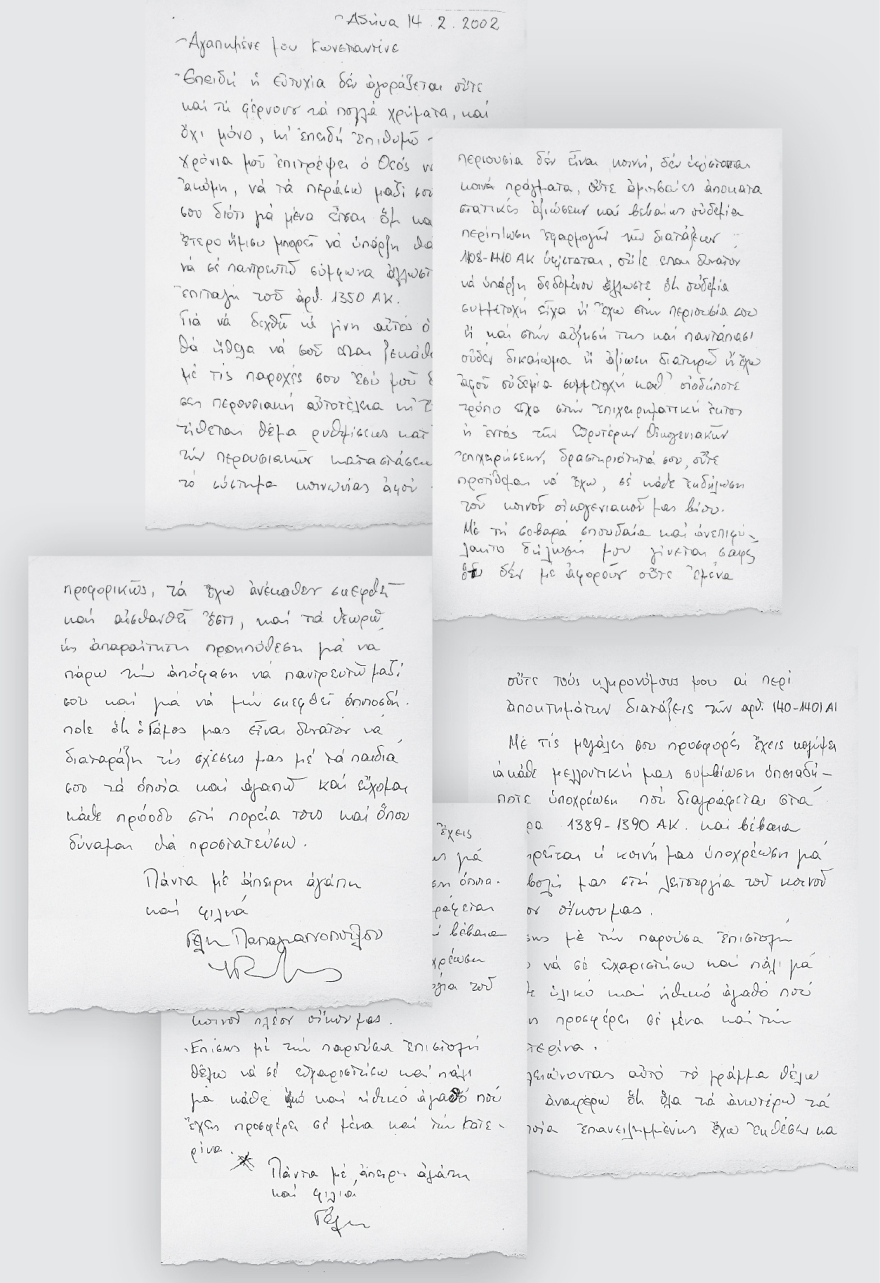 Αθήνα 14.2.2002
Αγαπημένε μου Κωνσταντίνε
Επειδή ἡ εὐτυχία δέν ἀγοράζεται οὔτε
καί τή φέρνουν τά πολλά χρήματα, καί
ὄχι μόνο, κι' ἐπειδή ἐπιθυμῶ
χρόνια μοῦ ἐπιτρέψει ὁ Θεός ν
ἀκόμη, νά τά περάσω μαζί σου
σου διότι γιά μένα εἶσαι ὅτι κα
ἕτερο ἥμισυ μπορεῖ νά ὑπάρξη θά
νά σέ παντρευτῶ σύμφωνα ἄλλωστ
ἐπιταγή τοῦ άρθ. 1350 ΑΚ.
Γιά νά δεχθῶ νά γίνη αὐτό ὁ
θά ἤθελα νά σοῦ εἶναι ξεκάθ
μέ τίς παροχές σου ἐσύ μοῦ
ση περιουσιακή αὐτοτέλεια κι' ἔ
τίθεται θέμα ρυθμίσεως κατ
τῶν περιουσιακῶν καταστάσε
τό σύστημα κοινωνίας ἀφοῦ
περιουσία δέν εἶναι κοινή, δέν ὑφίστανται
κοινά πράγματα, οὔτε ἀμοιβαίες ἀποκατα
στατικές ἀξιώσεων καί βεβαίως οὐδεμία
περίπτωση ἐφαρμογῆς τῶν διατάξεων
1408-1410 ΑΚ ὑφίσταται, οὔτε εἶναι δυνατόν
νά ὑπάρξη δεδομένου ἄλλωστε ὅτι οὐδεμία
συμμετοχή εἶχα ἤ ἔχω στήν περιουσία σου
ἤ καί στήν αὔξησή της καί παντάπασι
οὐδέν δικαίωμα ἤ ἀξίωση διατηρῶ ἤ ἔχω
ἀφοῦ οὐδεμία συμμετοχή καθ' οἱοδήποτε
τρόπο εἶχα στήν ἐπιχειρηματική ἐκτός
ἤ ἐντός τῶν εὐρυτέρων οἰκογενειακῶν
ἐπιχειρήσεων, δραστηριότητά σου, οὔτε
προτίθεμαι νά ἔχω, σέ κάθε ἐκδήλωση
τοῦ κοινοῦ οἰκογενειακοῦ μας βίου.
Μέ τή σοβαρά σπουδαία καί ἀνεπιφύ-
λακτο δήλωσή μου γίνεται σαφές
ὅτι δέν μέ ἀφοροῦν οὔτε ἐμένα
προφορικῶς, τά ἔχω ἀνέκαθεν σκεφθεῖ
καί αἰσθανθεῖ ἔτσι, καί τά θεωρῶ
ὡς ἀπαραίτητη προϋπόθεση γιά νά
πάρω τήν ἀπόφαση νά παντρευτῶ μαζί
σου καί γιά νά μήν σκεφθεῖ ὁποιοσδή-
ποτε ὅτι ὁ Γάμος μας εἶναι δυνατόν νά
διαταράξη τίς σχέσεις μας μέ τά παιδιά
σου τά ὁποῖα καί ἀγαπῶ καί εὔχομαι
κάθε πρόοδο στή πορεία τους καί ὅπου
δύναμαι θά προστατεύσω.
Πάντα μέ ἄπειρη ἀγάπη
καί φιλιά
Γέλη Παπαγιαννοπούλου
οὔτε τούς κληρονόμους μου αἱ περί
ἀποκτημάτων διατάξεις τῶν αρθ. 140-1401 ΑΚ
Μέ τίς μεγάλες σου προσφορές ἔχεις καλύψει
κάθε μελλοντική μας συμβίωση ὁποιαδή-
ποτε ὑποχρέωση πού διαγράφεται στά
ρα 1389-1390 ΑΚ. καί βέβαια
ρεῖται ἡ κοινή μας ὑποχρέωση γιά
βολή μας στή λειτουργία τοῦ κοινοῦ
ον οἴκου μας.
σης μέ τήν παροῦσα ἐπιστολή
νά σέ εὐχαριστήσω καί πάλι γιά
ε ὑλικό καί ἠθικό ἀγαθό πού
προσφέρει σέ μένα καί τήν
τερίνα.
λειώνοντας αὐτό τό γράμμα θέλω
ἀναφέρω ὅτι ὅλα τά ἀνωτέρω τά
ποία ἐπανειλημμένως ἔχω ἐκθέσει κα
ἔχεις
ως γιά
ση ὁποια-
ράφεται
ί βέβαια
χρέωση
γία τοῦ
κοινοῦ πλέον οἴκου μας.
Ἐπίσης μέ τήν παροῦσα ἐπιστολή
θέλω νά σέ εὐχαριστήσω καί πάλι
για κάθε καί ἠθικό ἀγαθό πού
ἔχεις προσφέρει σέ μένα καί τήν Κατε-
ρίνα.
Πάντα μέ ἄπειρη ἀγάπη
καί φιλιά
Γέλη